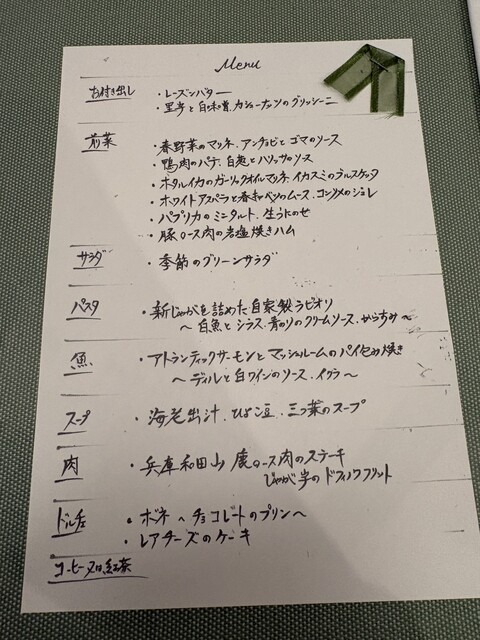 Menu
お付き出し
・レーズンバター
・里芋と白味噌、カシューナッツのグリッシーニ
前菜
・春野菜のマリネ、アンチョビとゴマのソース
・鴨肉のパテ、白葱とハリッサのソース
・ホタルイカのガーリックオイルマリネ、イカスミのブルスケッタ
・ホワイトアスパラと春キャベツのムース、コンソメのジュレ
・パプリカのミニタルト、生うにのせ
・豚ロース肉の岩塩焼きハム
サラダ
・季節のグリーンサラダ
パスタ
・新じゃがを詰めた自家製ラビオリ
〜白魚とシラス、青のりのクリームソース、からすみ〜
魚
・アトランティックサーモンとマッシュルームのパイ包み焼き
〜ディルと白ワインのソース、イクラ〜
スープ
・海老出汁、ひよこ豆、三つ葉のスープ
肉
・兵庫和田山 鹿のロース肉のステーキ
じゃが芋のドフィノワフリット
ドルチェ
・ボネ 〜チョコレートのプリン〜
・レアチーズのケーキ
コーヒー又は紅茶